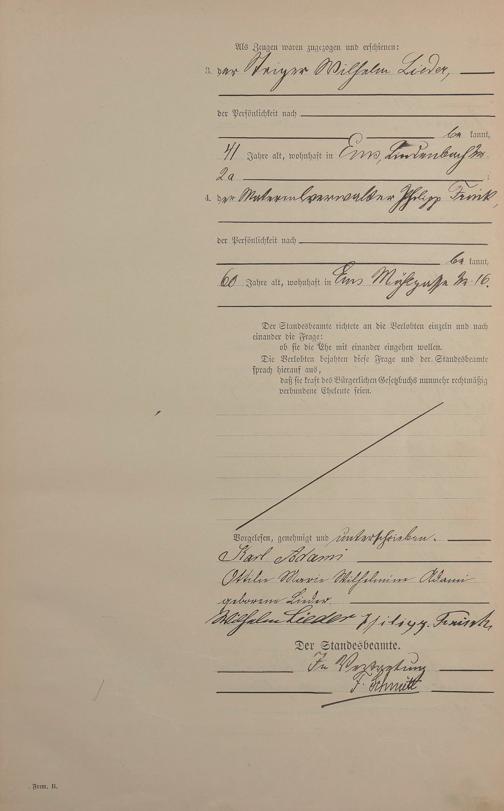 Als Zeugen waren zugezogen und erschienen:
3. der Steiger Wilhelm Lieder,
der Persönlichkeit nach
be kannt,
41 Jahre alt, wohnhaft in Ems, Lindenbach No
2a ;
4. der Materialverwalter Philipp
der Persönlichkeit nach
be kannt,
60 Jahre alt, wohnhaft in Ems Mühlgasse No 16.
Der Standesbeamte richtete an die Verlobten einzeln und nach
einander die Frage:
ob sie die Ehe mit einander eingehen wollen.
Die Verlobten bejahten diese Frage und der Standesbeamte
sprach hierauf aus,
daß sie kraft des Bürgerlichen Gesetzbuchs nunmehr rechtmäßig
verbundene Eheleute seien.
Vorgelesen, genehmigt und unterschrieben.
Karl Adami
Ottilie Marie Wilhelmine Adami
geborene Lieder
Wilhelm Lieder Philipp
Der Standesbeamte.
In Vertretung
F. Schmitt
Form. B.